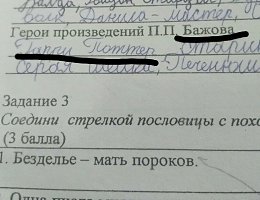 Балда,
поп, Данила-мастер,
Герои произведений П.П. Бажова
Гарри Поттер, старик
Серая шейка, Печенюш
Задание 3
Соедини стрелкой пословицы с пох
(3 балла)
1. Безделье – мать пороков.